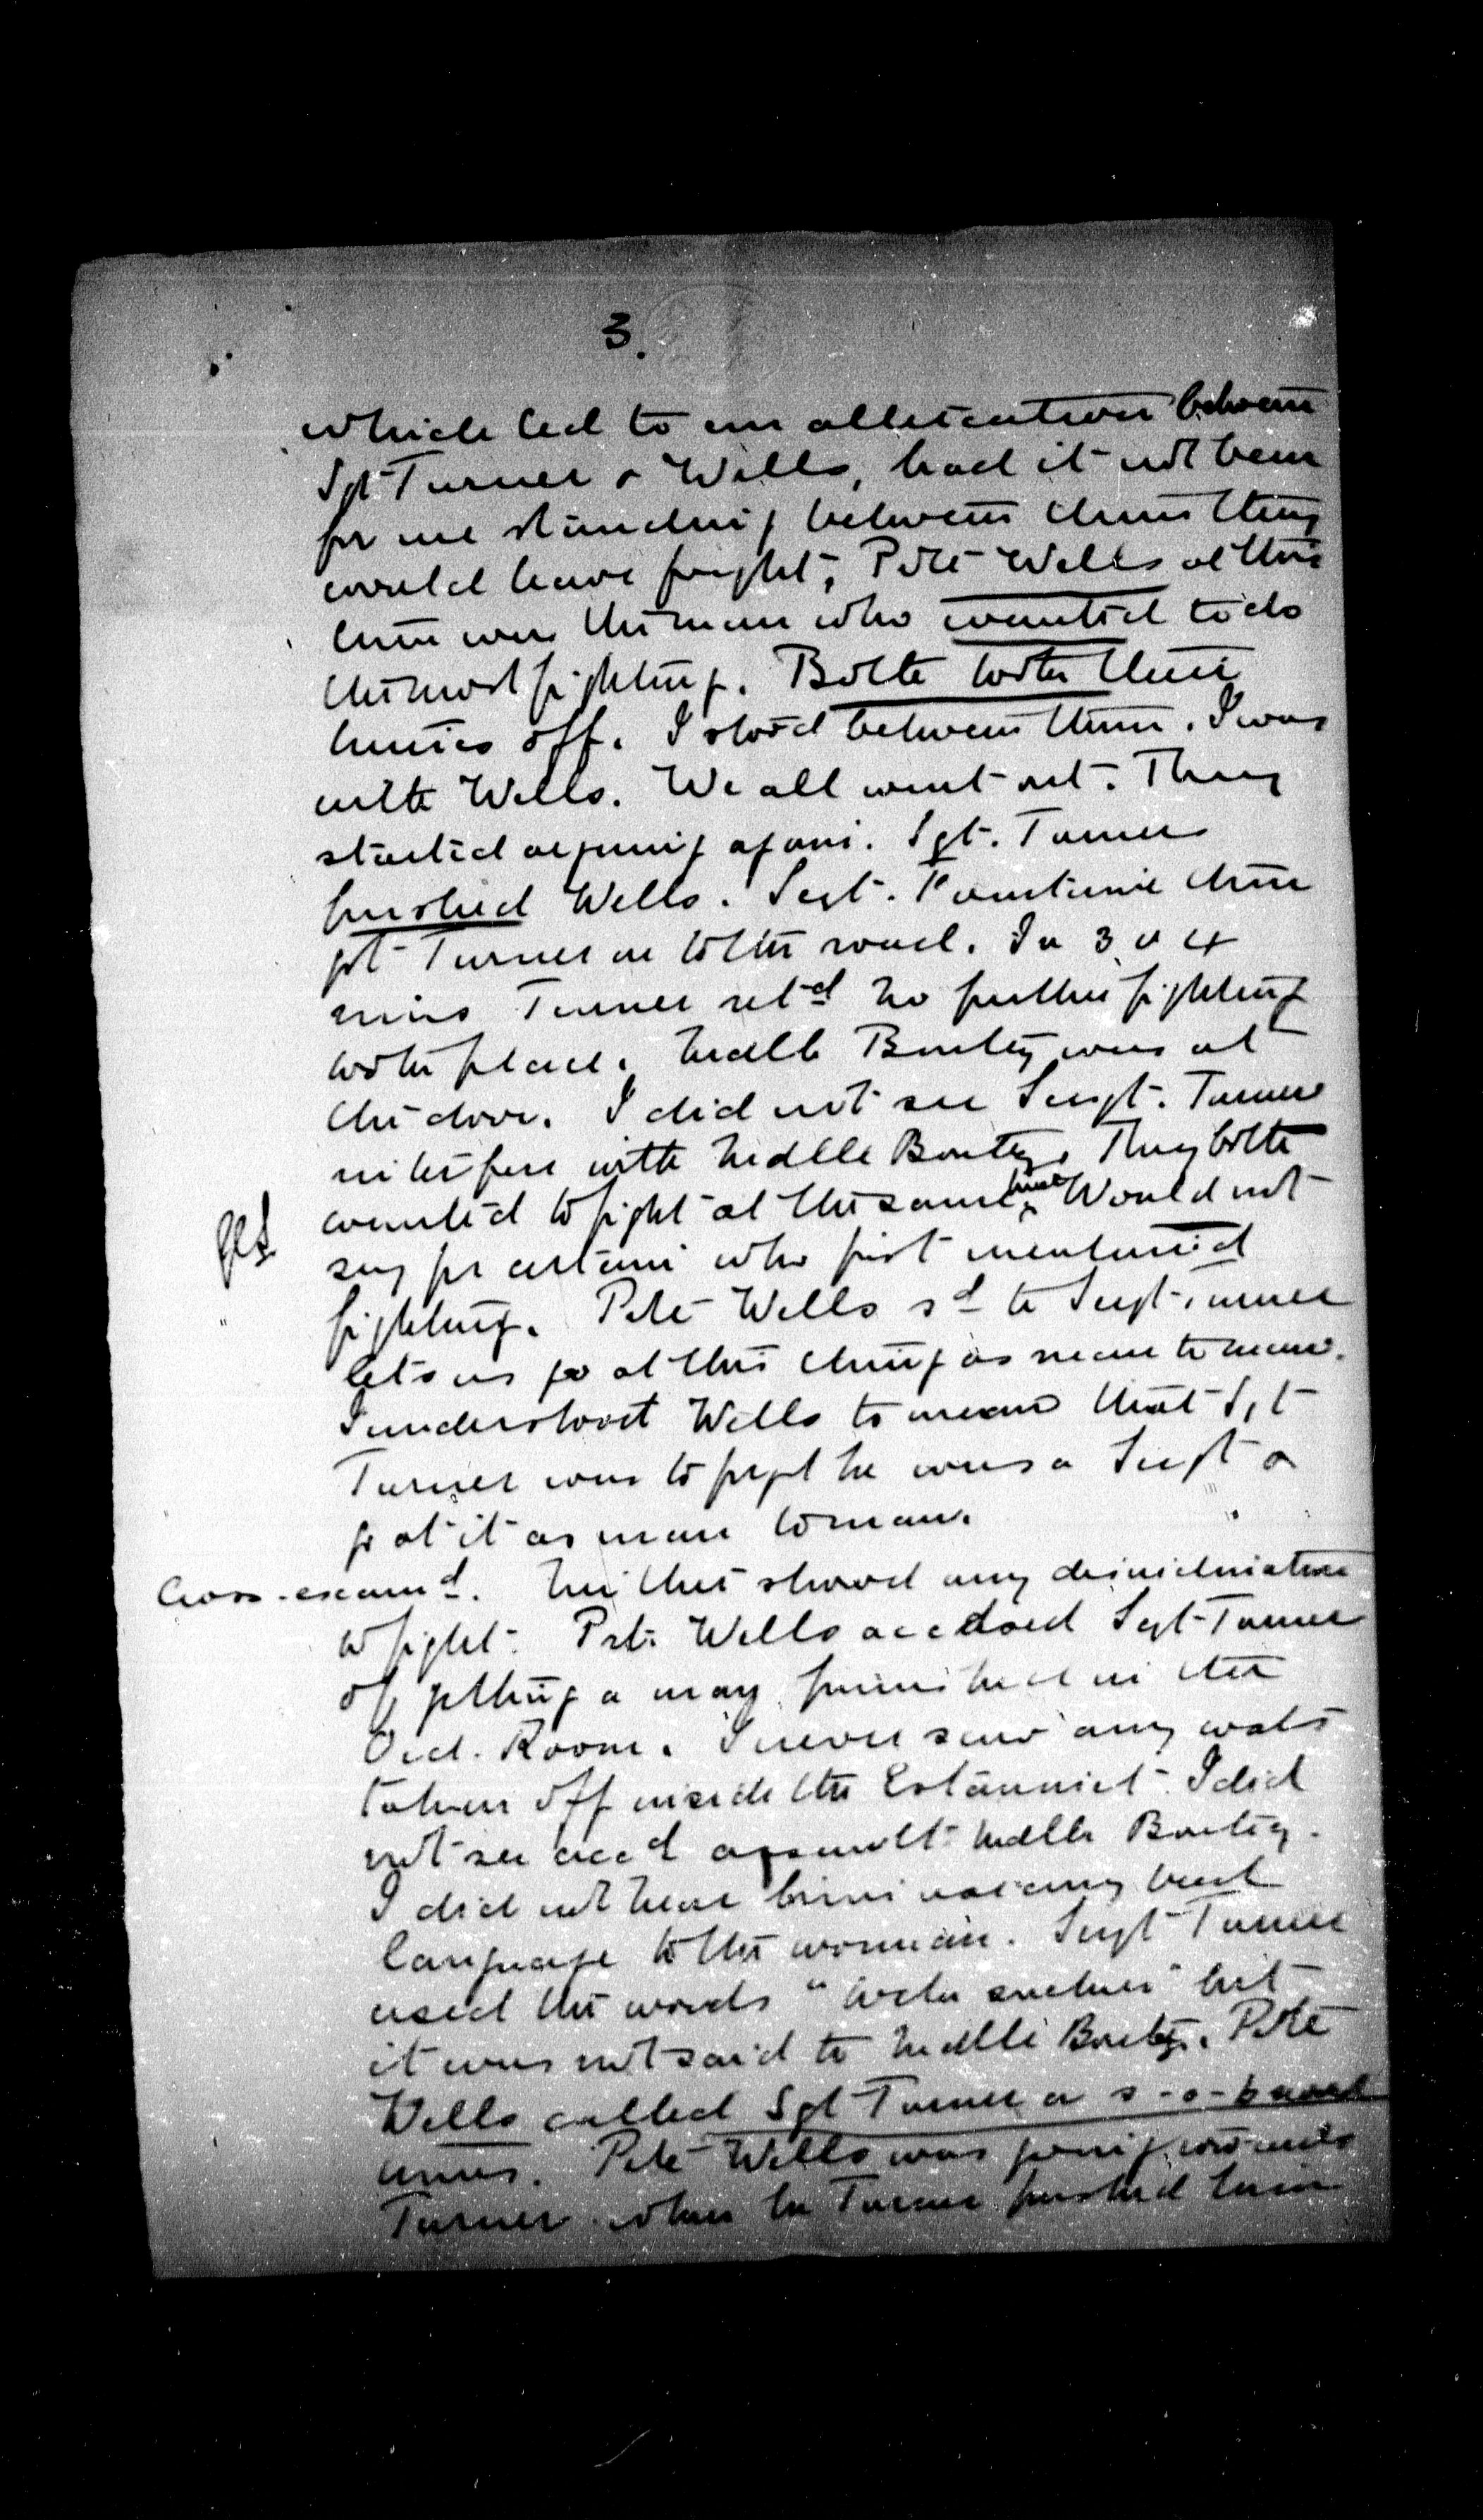 3.
which led to an altercation between
Sgt Turner & Wells, had it not been
for me standing between them they
would have fought, Pvte Wells at this
time was the man who wanted to do
the most fighting. Both took their
tunics off. I stood between them. I was
with Wells. We all went out. They
started arguing again. Sgt. Turner
pushed Wells. Sergt. then
got Turner on to the road. In 3 or 4
mins Turner retd no further fighting
took place. Mdlle Boutey was at
the door. I did not see Sergt. Turner
interfere with Mdlle Boutey. They both
wanted to fight at the same time. Would not
say for certain who first mentioned
fighting. Pte Wells sd to Sergt Turner
lets us go at this thing as man to man.
I understood Wells to mean that Sgt
Turner was to forget he was a Sergt &
go at it as man to man.
Cross-examd. Neither showed any disinclination
to fight. Pte. Wells accused Sergt Turner
of getting a man punished in the
Ord. Room. I never saw any coats
taken off inside the Estaminet. I did
not see accd assault Mdlle Boutey.
I did not hear him use any bad
language to the woman. Sergt Turner
used the words " " but
it was not said to Mdlle Boutey. Pvte
Wells called Sgt Turner a s-o-b
times. Pte Wells was going towards
Turner when he Turner pushed him